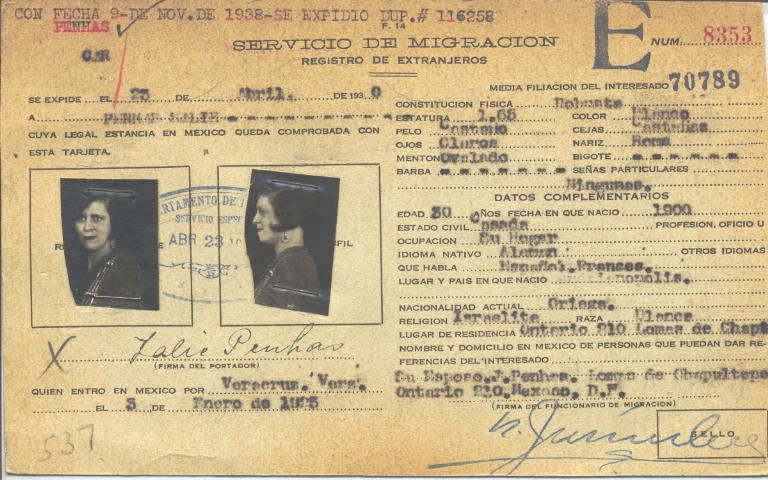 CON FECHA 9-DE NOV. DE 1938-SE EXPIDIO DUP.# 116258
PENHAS
F. 14
SERVICIO DE MIGRACION
REGISTRO DE EXTRANJEROS
E
NUM. 8353
70789
SE EXPIDE EL 25 DE Abril. DE 193 0
A PENHAS
CUYA LEGAL ESTANCIA EN MEXICO QUEDA COMPROBADA CON
ESTA TARJETA.
SERVICIO
ABR 23
FIL
Zalie Penhas
(FIRMA DEL PORTADOR)
QUIEN ENTRO EN MEXICO POR Veracruz. Verz.
EL 3 DE Enero de 1925
537
MEDIA FILIACION DEL INTERESADO
CONSTITUCION FISICA Robusta
ESTATURA 1.65 COLOR Blanco
PELO Castaño CEJAS Castañas
OJOS Claros NARIZ Roma
MENTON Ovalado BIGOTE - - - - - -
BARBA - - - - - - SEÑAS PARTICULARES
Ningunas.
DATOS COMPLEMENTARIOS
EDAD 30 AÑOS FECHA EN QUE NACIO 1900
ESTADO CIVIL Casada PROFESION, OFICIO U
OCUPACION Su Hogar
IDIOMA NATIVO Aleman OTROS IDIOMAS
QUE HABLA Español. Frances.
LUGAR Y PAIS EN QUE NACIO
NACIONALIDAD ACTUAL Griega.
RELIGION Israelita RAZA Blanca
LUGAR DE RESIDENCIA Ontario 210 Lomas de Chapt
NOMBRE Y DOMICILIO EN MEXICO DE PERSONAS QUE PUEDAN DAR RE-
FERENCIAS DEL INTERESADO
Su Esposo. J. Penhas. Lomas de Chapultepe
Ontario 210. D.F.
(FIRMA DEL FUNCIONARIO DE MIGRACION)
SELLO